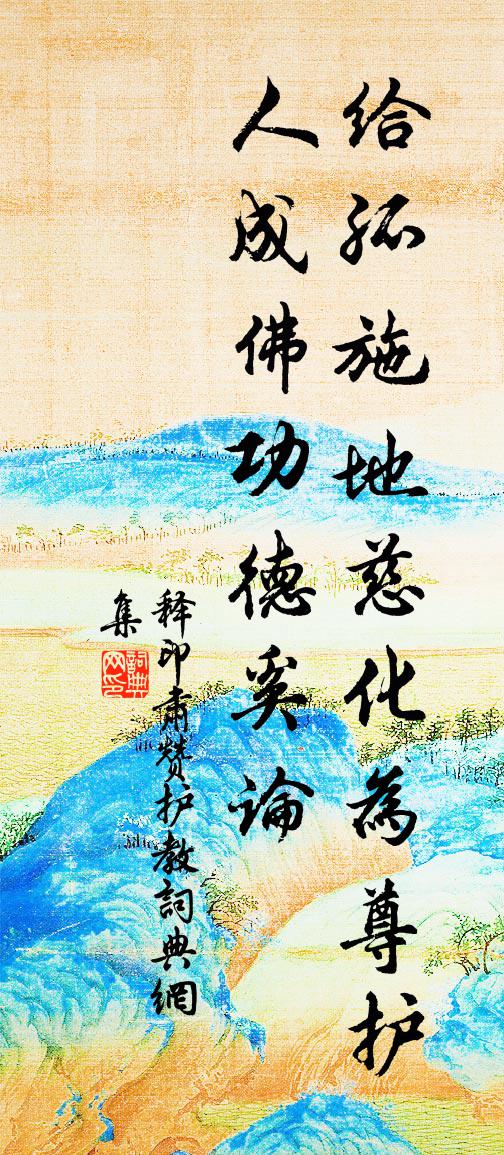 给孤施地慈化為尊护
人成佛功德奚論
释印肃赞护教詞典網
集
詞典
网印